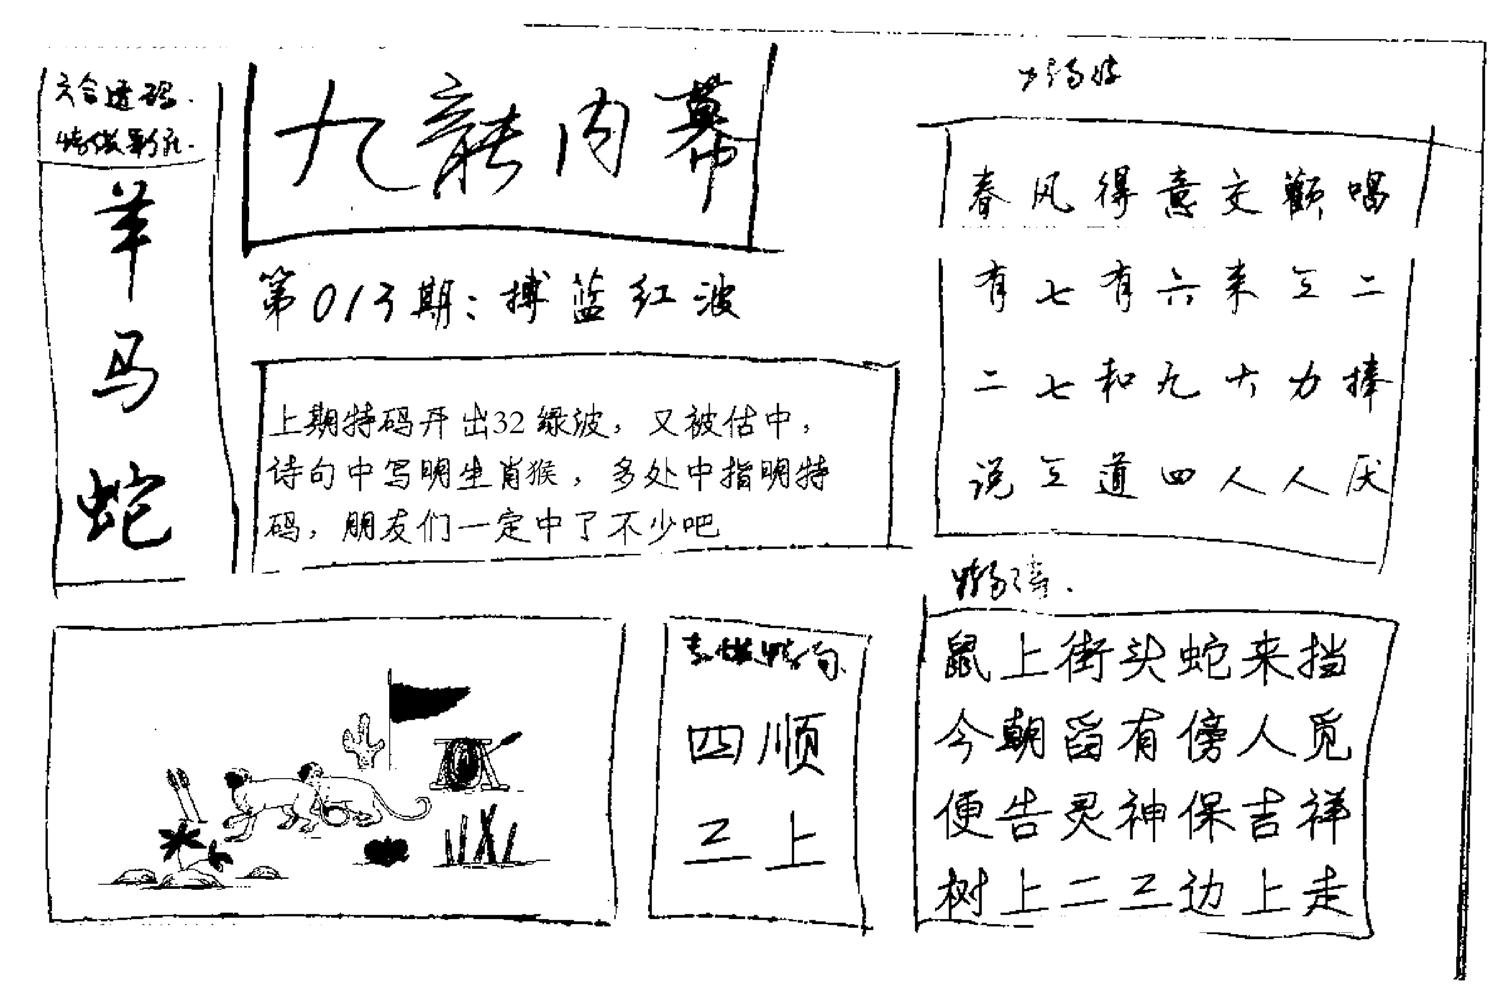 六合透码.
羊
马
蛇
九龍内幕
第013期：搏蓝红波
上期特码开出32绿波，又被估中，
诗句中写明生肖猴，多处中指明特
码，朋友们一定中了不少吧
春风得意交颧喝
有七有六来三二
二七和九大力捧
说三道四人人厌
四顺
三上
鼠上街头蛇来挡
今朝留有傍人觅
便告灵神保吉祥
树上二三边上走